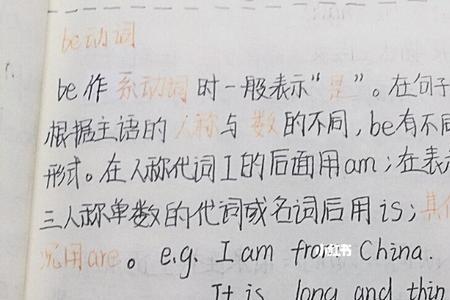 be动词
be作系动词时一般表示“是”。在句子
根据主语的人称与数的不同,be有不同
形式。在人称代词I的后面用am;在表
三人称单数的代词或名词后用is;其
况用are。e.g. I am from China.
It is long and thin